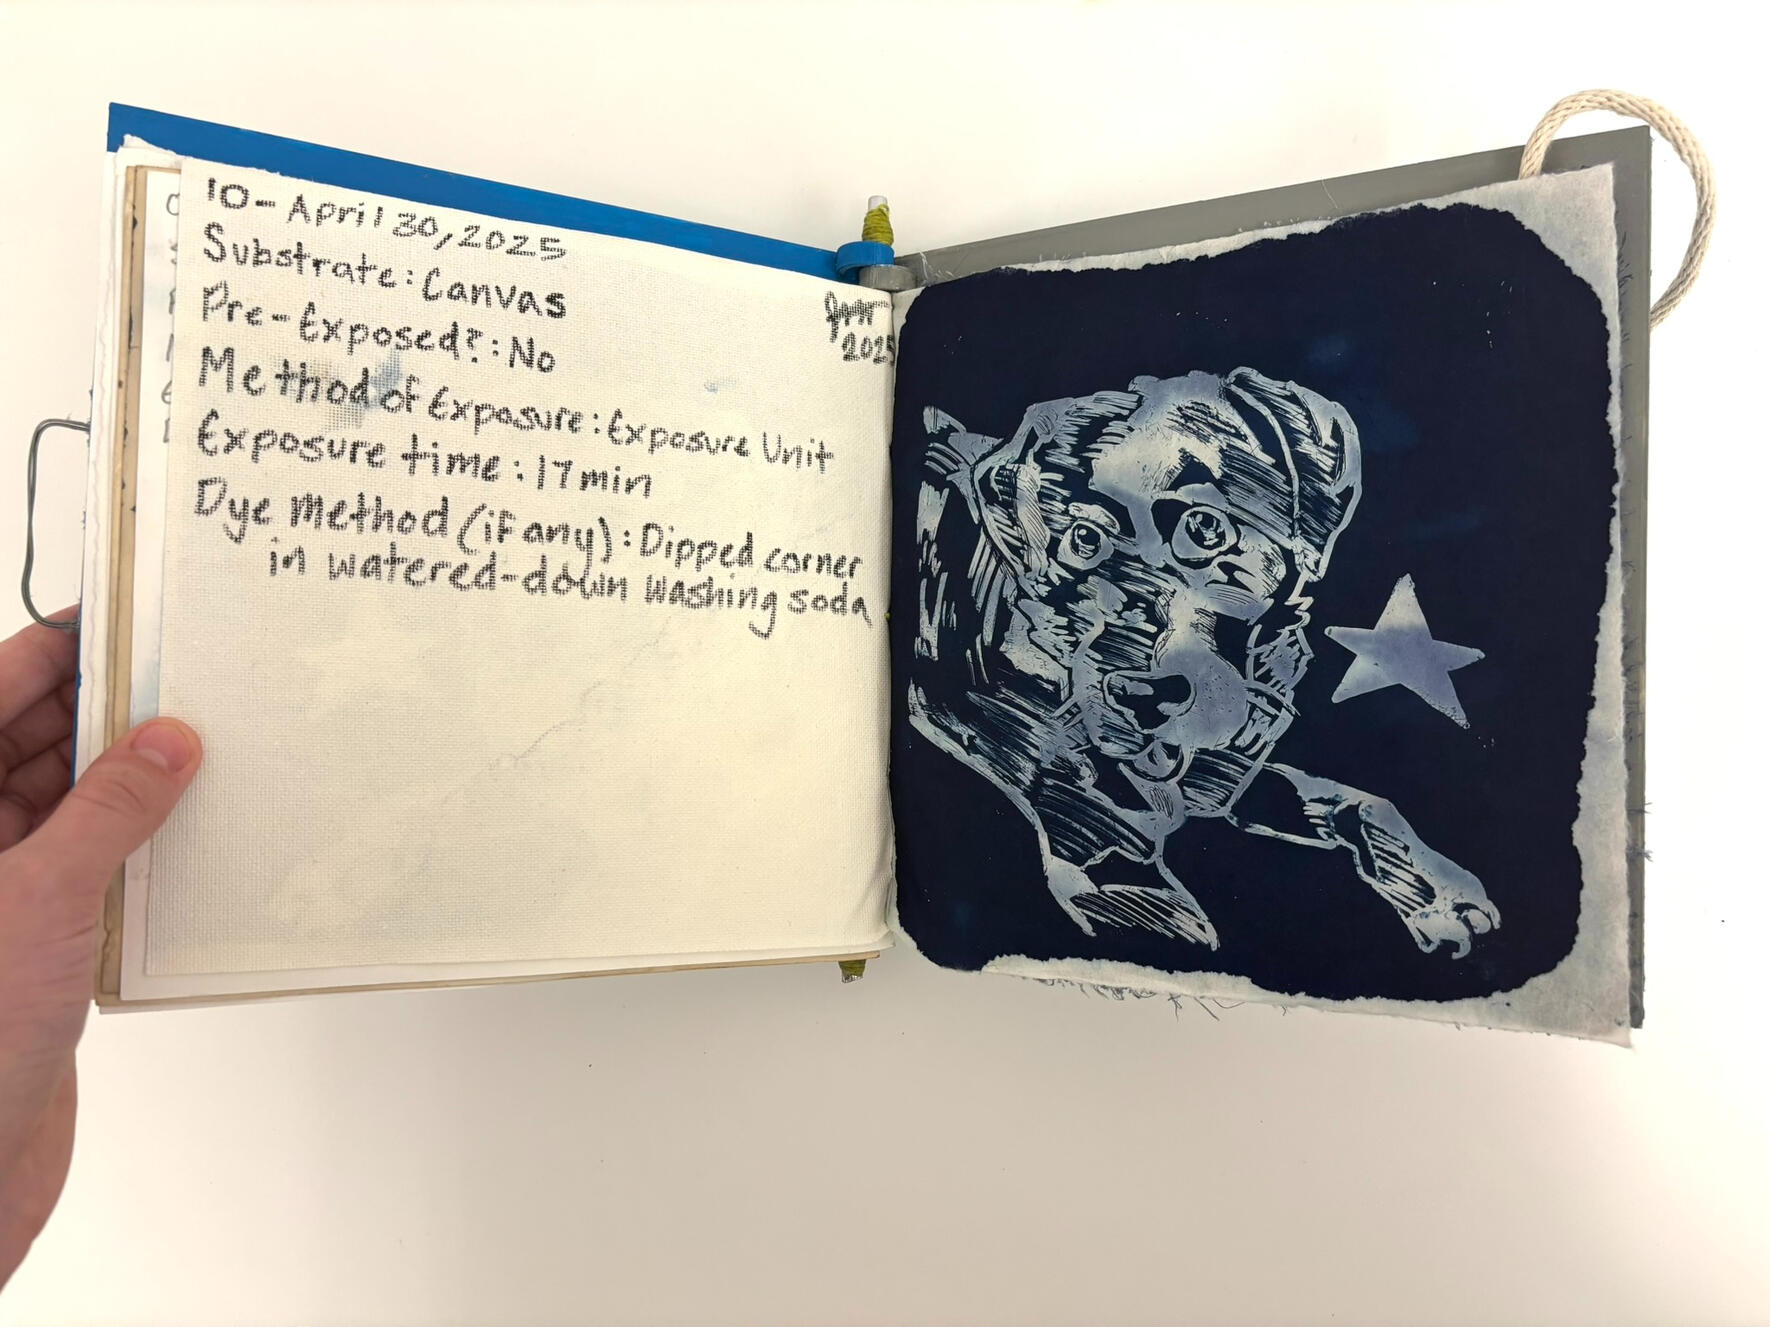 10- April 30, 2025
Substrate: Canvas
Pre-Exposed?: No
Method of Exposure: Exposure Unit
Exposure time: 17 min
Dye Method (if any): Dipped corner
in watered-down washing soda
2025